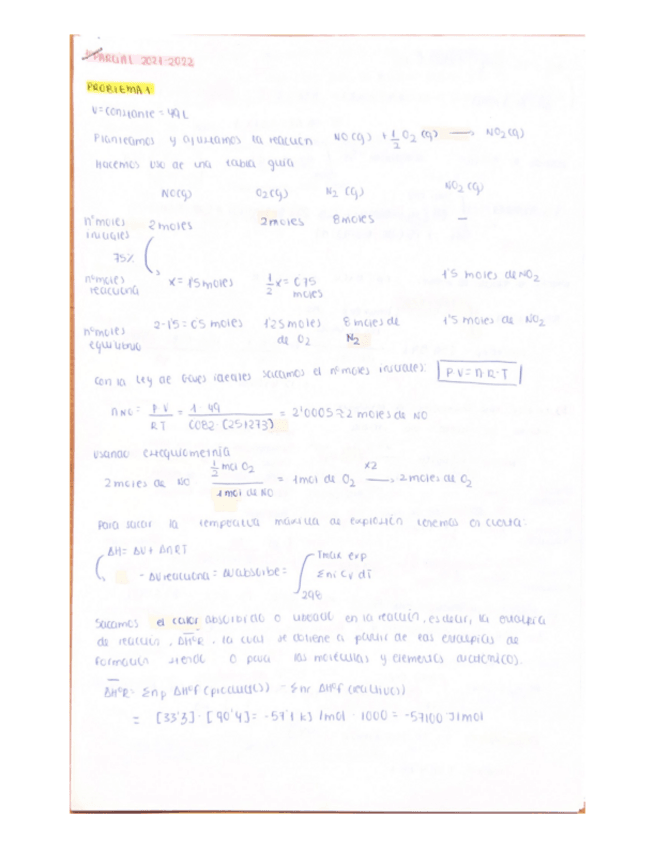 PARCIAL 2021-2022
PROBLEMA 1
V=constante = 49 L
Planteamos y ajustamos la reacción NO(g) + 1/2 O2 (g) → NO2(g)
Hacemos uso de una tabla guía
NO(g) O2(g) N2 (g) NO2 (g)
nº moles iniciales 2 moles 2 moles 8 moles —
75%
nº moles reacciona x = 1'5 moles 1/2 x = 0'75 moles 1'5 moles de NO2
nº moles equilibrio 2-1'5 = 0'5 moles 1'25 moles de O2 8 moles de N2 1'5 moles de NO2
Con la Ley de Gases ideales sacamos el nº moles iniciales: PV = n·R·T
nNO = PV/RT = 1·49/0'082·(25+273) = 2'0005 ≈ 2 moles de NO
Usando estequiometría
2 moles de NO 1/2 mol O2/1 mol de NO = 1 mol de O2 x2 → 2 moles de O2
Para sacar la temperatura máxima de explosión tenemos en cuenta:
ΔH = ΔU + ΔnRT
- ΔU reacciona = ΔU absorbe = ∫ 298 Tmax exp Σni Cv dT
Sacamos el calor absorbido o liberado en la reacción, es decir, la entalpía
de reacción, ΔHºR, la cual se obtiene a partir de las entalpías de
formación siendo 0 para las moléculas y elementos diatómicos.
ΔHºR = Σnp ΔHºf (productos) - Σnr ΔHºf (reactivos)
= [33'3] - [90'4] = -57'1 kJ/mol · 1000 = -57100 J/mol